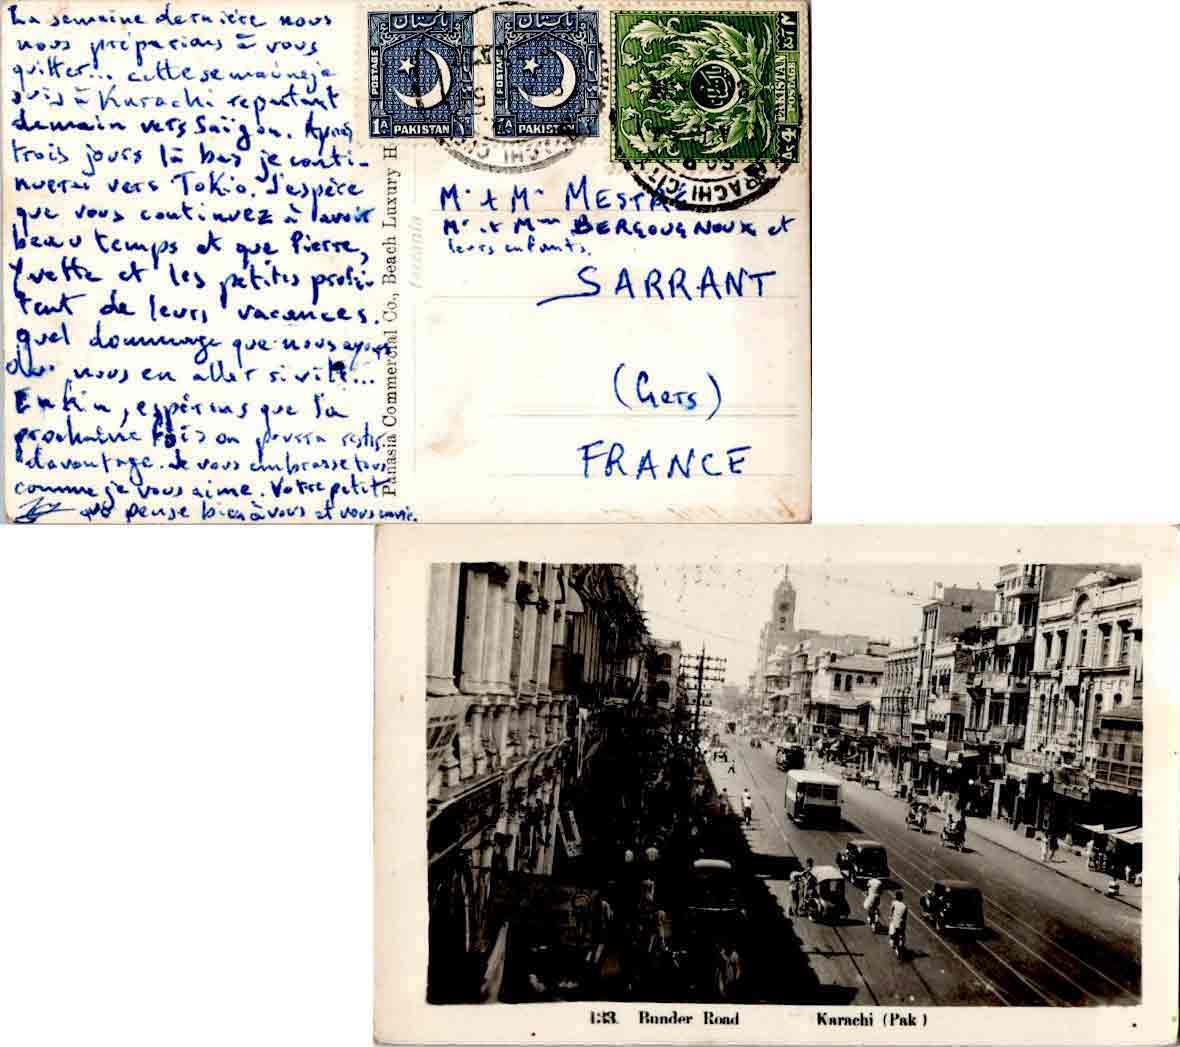 La semaine dernière nous
nous préparions à vous
quitter... cette semaine je
suis à Karachi repartant
demain vers Saïgon. Après
trois jours là bas je conti-
nuerai vers Tokio. J'espère
que vous continuez à avoir
beau temps et que Pierre,
Yvette et les petites profi-
tent de leurs vacances.
quel dommage que nous ayons
dû nous en aller si vite...
Enfin, espérons que la
prochaine fois on pourra rester
davantage. Je vous embrasse tous
comme je vous aime. Votre petit
qui pense bien à vous et vous
پاکستان
POSTAGE
1A
PAKISTAN
پاکستان
POSTAGE
PAKISTAN
PAKISTAN
POSTAGE
KARACHI CITY
KARACHI CITY
Panasia Commercial Co., Beach Luxury H
Mr & Me
Mr & Mme BERGOUGNOUX et
leurs enfants.
SARRANT
(Gers)
FRANCE
133. Bunder Road Karachi (Pak)